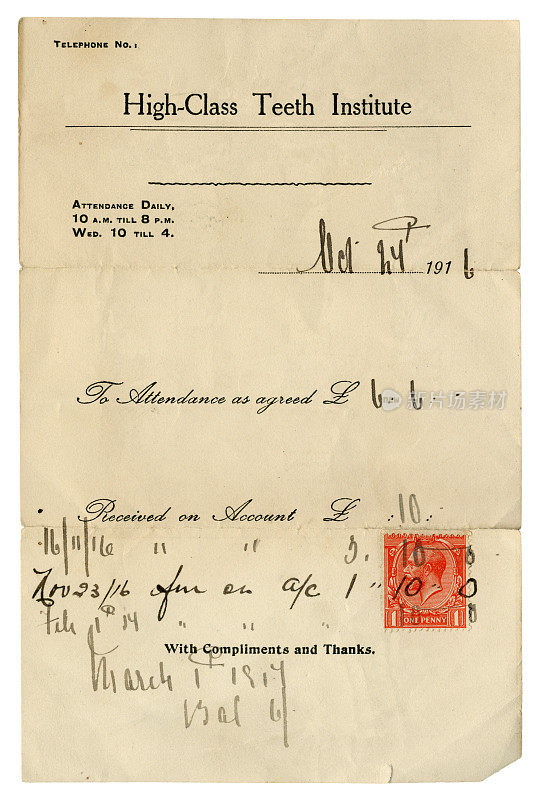 TELEPHONE NO.:
High-Class Teeth Institute
ATTENDANCE DAILY,
10 A.M. TILL 8 P.M.
WED. 10 TILL 4.
Oct 24 1916
To Attendance as agreed £ 6 . 6 .
Received on Account £ : 10 :
16/11/16 " " 3 . 10 . 0
Nov 23/16 on a/c 1 " 10 " 0
Feb 1st 17 " " "
ONE PENNY
With Compliments and Thanks.
March 1st 1917
Bal 6/